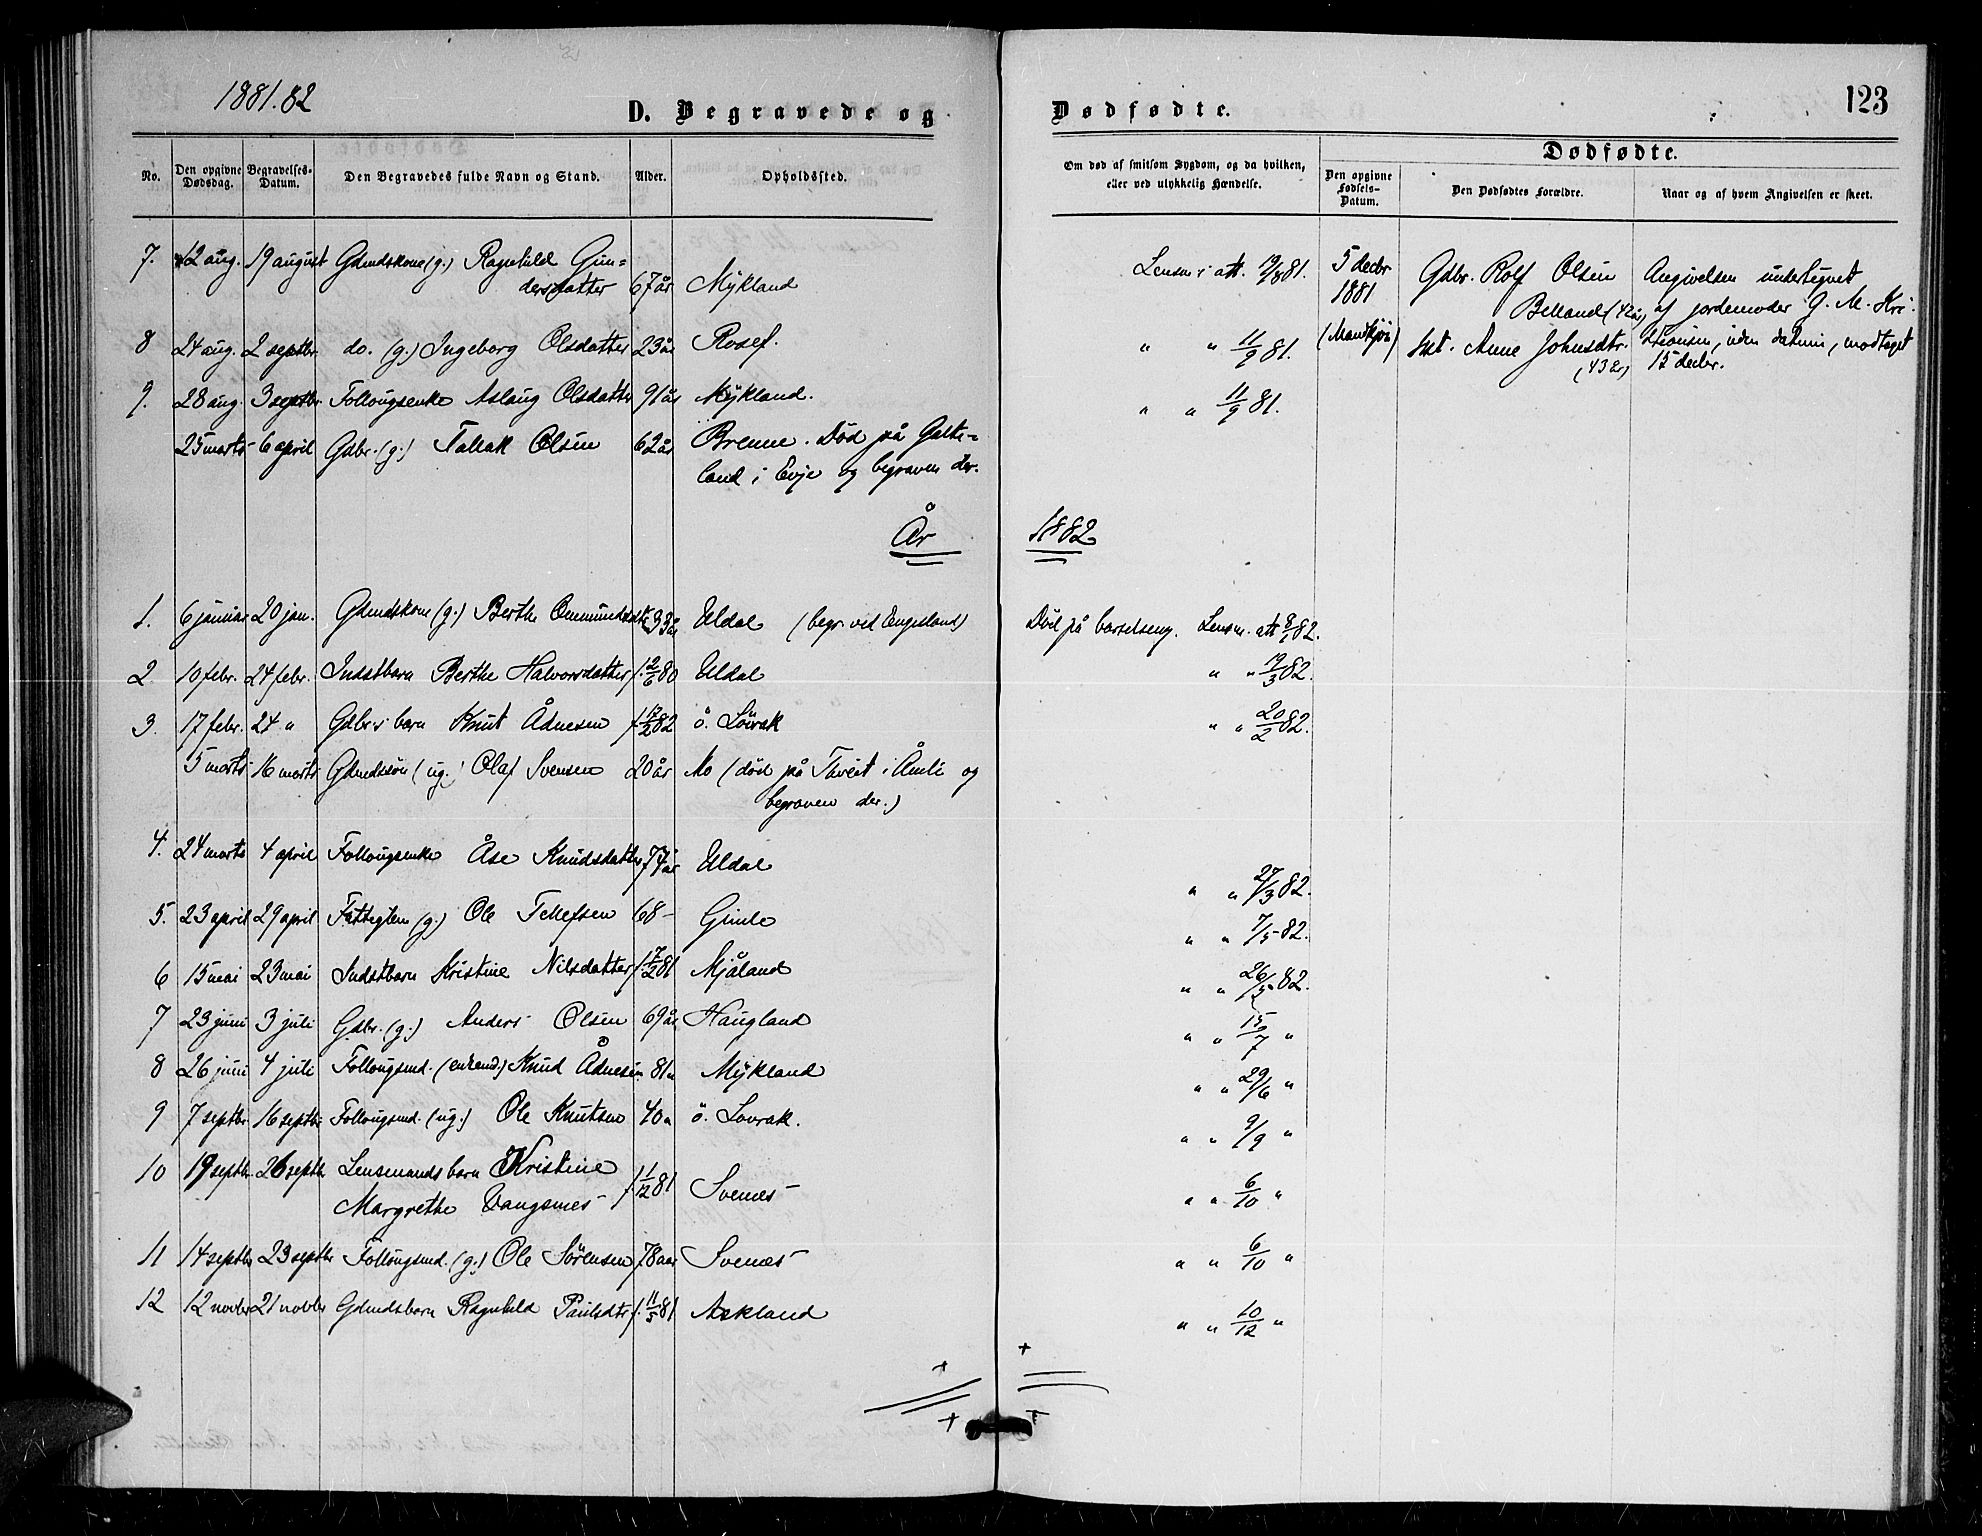 1881.82
D. Begravede og
Dødfødte.
123
No.
Den opgivne Dødsdag.
Begravelses-Datum.
Den Begravedes fulde Navn og Stand.
Alder.
Opholdssted.
Om død af smitsom Sygdom, og da hvilken,
eller ved ulykkelig Hændelse.
Dødfødte.
Den opgivne Fødsels-Datum.
Den Dødfødtes Forældre.
Naar og af hvem Angivelsen er skeet.
7. 12 aug. 19 august Gdmdskone (g.) Ragnhild Gun=
dersdatter 67 år Mykland
Lensm.s att. 19/8 81.
5 decbr 1881
(Mandkjön)
Gdbr. Rolf Olsen
Belland (42 år)
Hst. Anne Johnsdtr.
(43 år)
Angivelsen undertegnet
af jordemoder G. M. Kri-
stiansen, uden datum, modtaget
15 decbr.
8 24 aug. 2 septbr. do. (g.) Ingeborg Olsdatter 23 år Rosef. " " 11/9 81.
9. 28 aug. 3 septbr Follougsenke Aslaug Olsdatter 91 år Mykland. " " 11/9 81.
25 marts 6 april Gdbr. (g.) Tallak Olsen 62 år Brenne. Död på Galte-
land i Evje og begraven der.
År 1882
1. 6 januar 20 jan. Gdmdskone (g.) Berthe Ommundsdatr 33 år Uldal (begr. ved Engesland) Död på barselseng. Lensm. att 8/1 82.
2 10 febr. 24 febr. Indstbarn Berthe Halvorsdatter f. 2/6 80 Uldal " " 19/3 82.
3. 17 febr. 24 " Gdbr.s barn Knut Ådnesen f. 12/2 82 ö. Lövrak " " 20/2 82.
5 marts 16 marts Gdmdssön (ug.) Olaf Svensen 20 år Mo (död på Tveit i Åmli og
begraven der.)
4. 24 marts 4 april Follougsenke Åse Knudsdatter 74 år Uldal " " 27/3 82.
5. 23 april 29 april Fattiglem (g.) Ole Tellefsen 68 - Gimle " " 7/5 82.
6 15 mai 23 mai Indstbarn Kristine Nilsdatter f. 17/2 81 Mjåland " " 26/5 82.
7 23 juni 3 juli Gdbr. (g.) Anders Olsen 69 år Haugland " " 15/7 "
8 26 juni 4 juli Follougsmd. (enkemd.) Knud Ådnesen 81 " Mykland " " 29/6 "
9 7 septbr. 16 septbr Follougsmd. (ug.) Ole Knutsen 40 " ö. Lovrak. " " 9/9 "
10 19 septbr 26 septbr Lensmands barn Kristine
Margrethe Vangsnes f. 1/12 81 Svenes " " 6/10 "
11 14 septbr 23 septbr Follougsmd. (g.) Ole Sörensen 78 aar Svenes " " 6/10 "
12 12 novbr 21 novbr Gdmdsbarn Ragnhild Paulsdtr f. 11/5 81 Askland " " 10/12 "